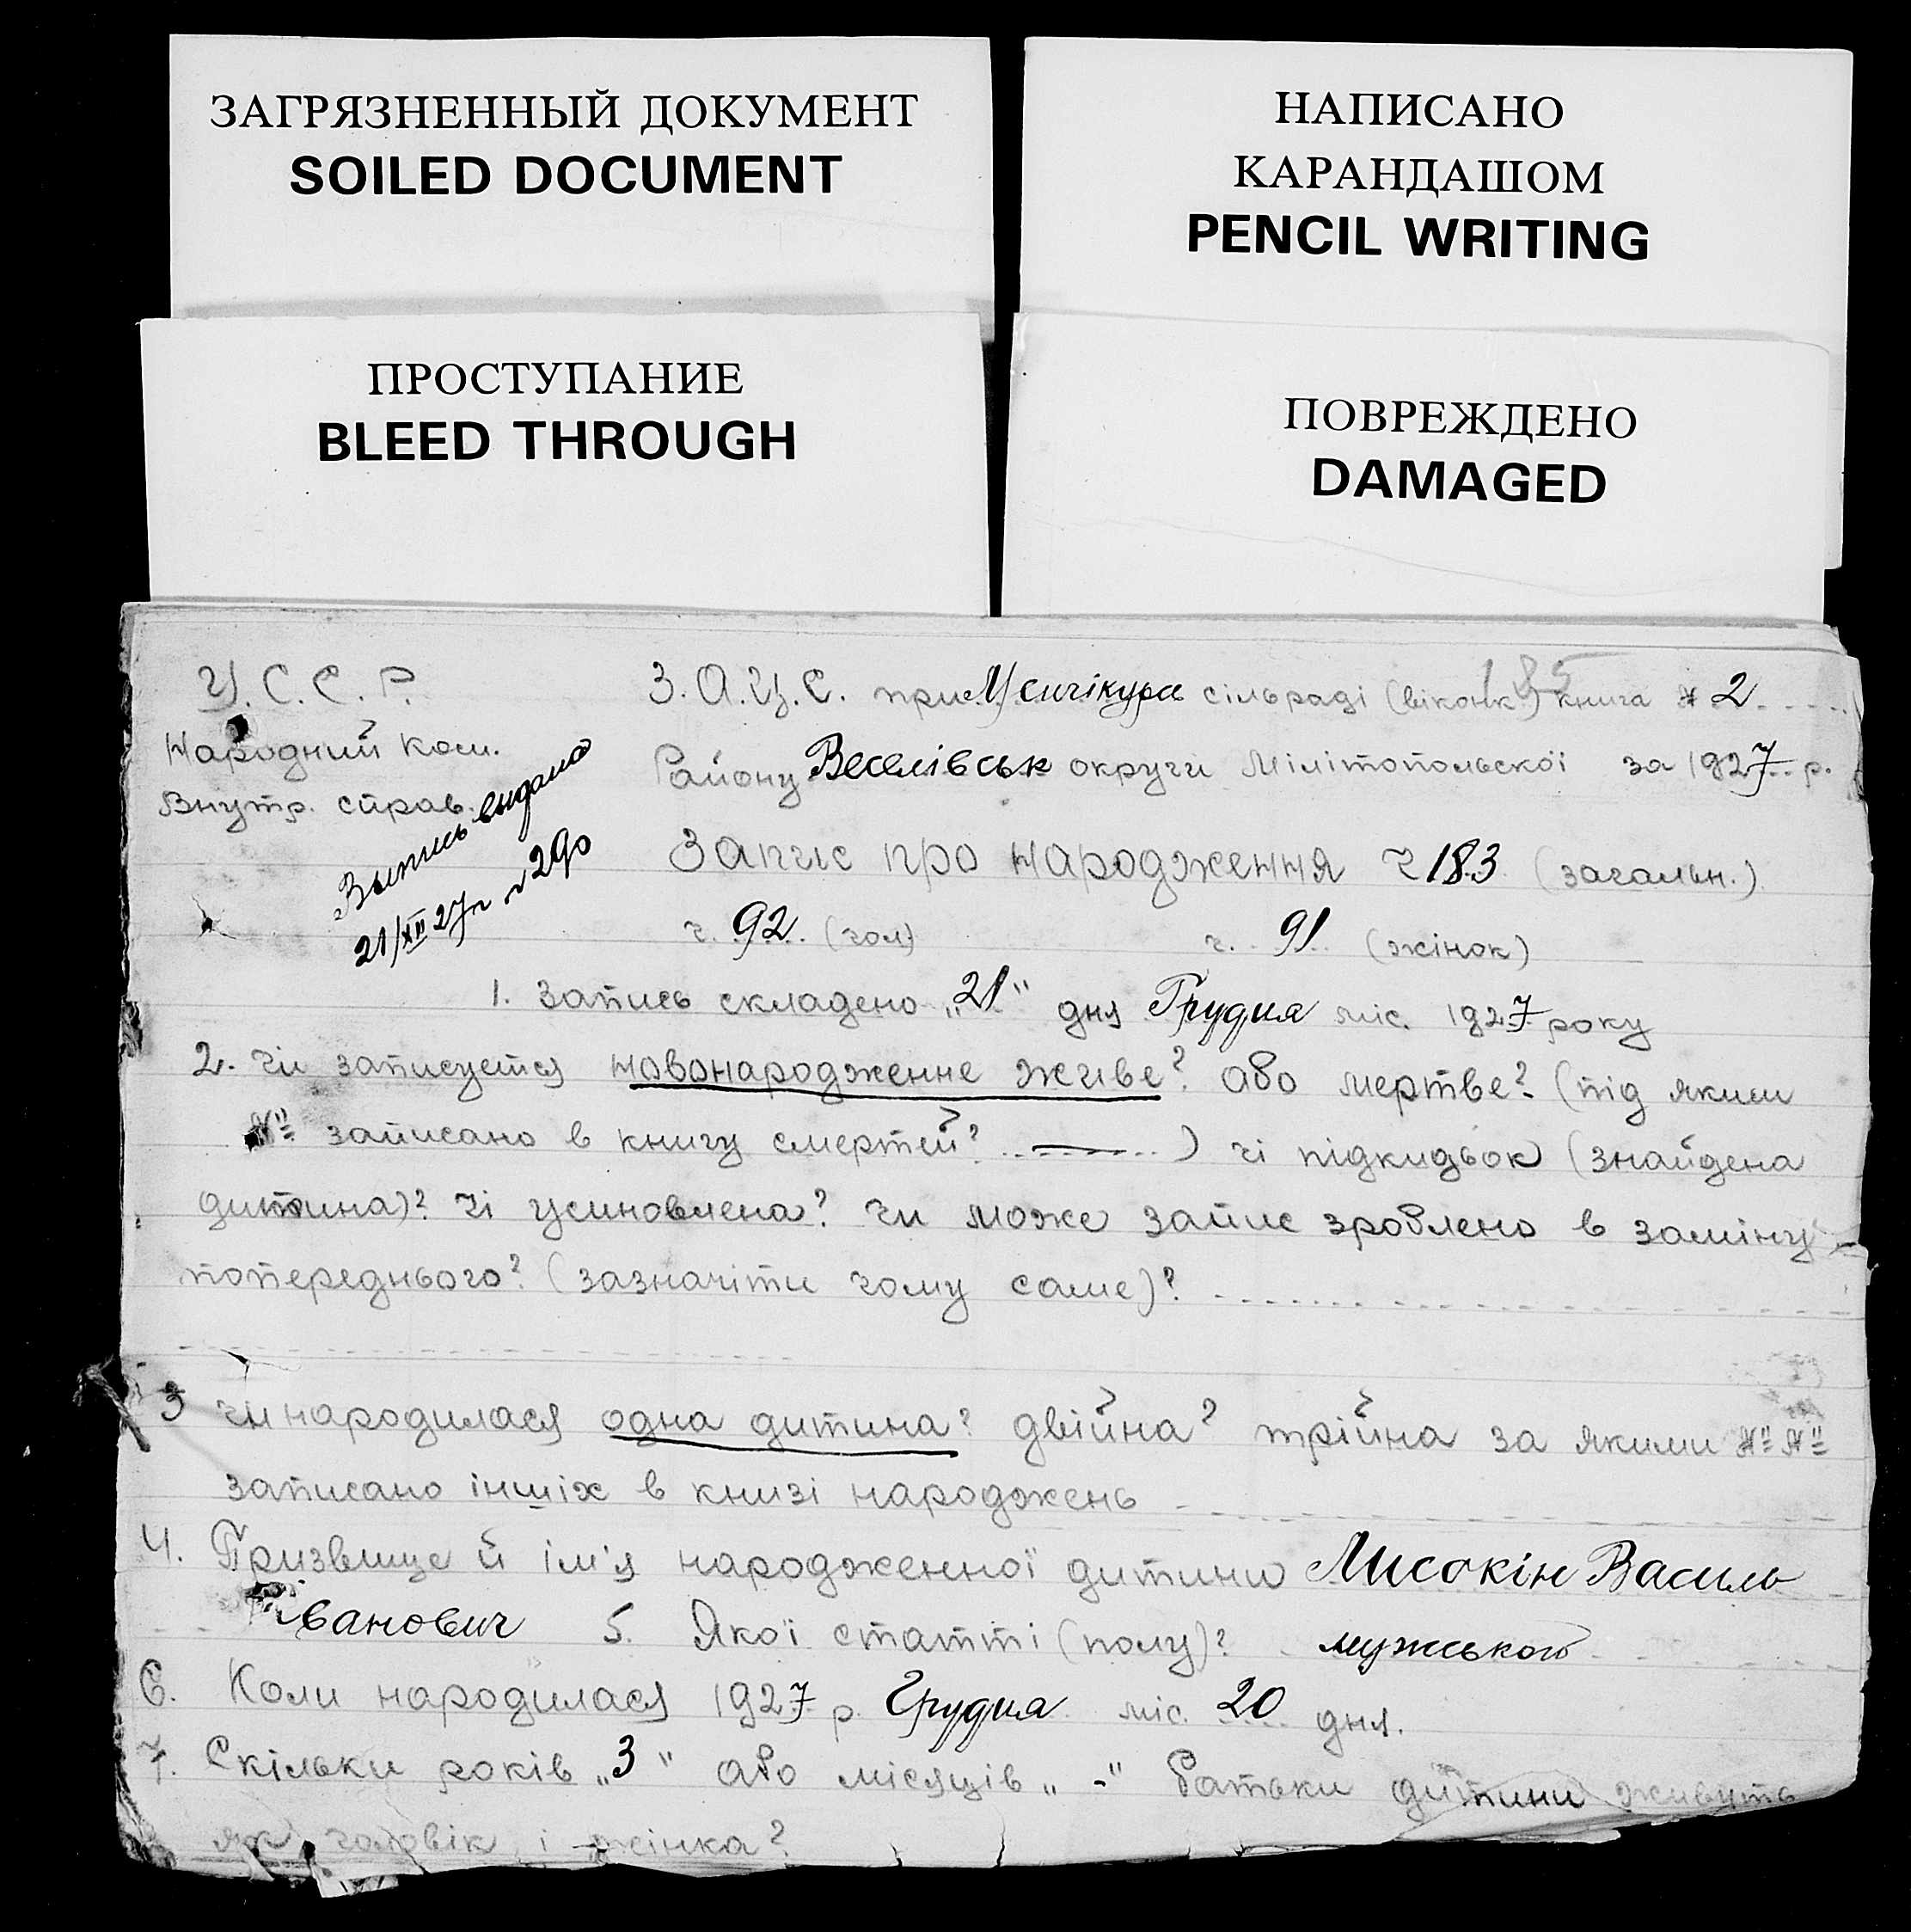 ЗАГРЯЗНЕННЫЙ ДОКУМЕНТ
SOILED DOCUMENT
НАПИСАНО
КАРАНДАШОМ
PENCIL WRITING
ПРОСТУПАНИЕ
BLEED THROUGH
ПОВРЕЖДЕНО
DAMAGED
185
У.С.С.Р.
Народний Ком.
Внутр. справ.
Выпись выдана
21/XII 27г № 290
З.А.Ц.С. при сільраді (віконк) книга № 2
Району Веселівськ округи Мілітопольскої за 1927 р.
Запис про народження ч 183 (загальн.)
ч. 92 (чол) ч. 91 (жінок)
1. Запись складено „21“ дня Грудня міс. 1927 року
2. Чи записуется новонародженне живе? або мертве? (під яким
№ записано в книгу смертей? —) чі підкидьок (знайдена
дитина)? Чі усиновлена? Чи може запис зроблено в заміну
попереднього? (зазначіти чому саме)?
3 Чи народилася одна дитина? двійна? трійна за якими №№
записано інших в книзі народжень
4. Призвище й ім'я народженної дитини Мисокін Василь
Іванович 5. Якої статті (полу)? мужського
6. Коли народилася 1927 р. Грудня міс. 20 дня.
7. Скільки років „3“ або місяців „-“ батьки дитини живуть
як чоловік і жінка?